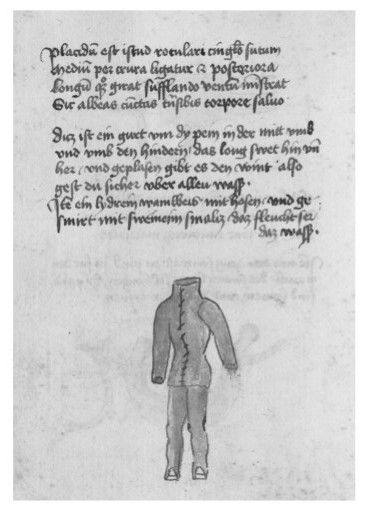 Placidū est istud rotulari cinglō sutum
Mediū per crura ligatur et posteriora
Longū qz girat sufflando ventū mistrat
Sic albeas cūctas trāsibis corpore salvo
Dicz ist ein gurt vm dy pein in der mitt vmb
vnd vmb den hindern das long swet hin vn
her vnd geplasen gibt es den wint also
gest du sicher vber allew wass.
Itē ein lydrein wambeis mit hosen vnd ge
smirt mit sweineim smalcz daz fleucht ser
daz wass.